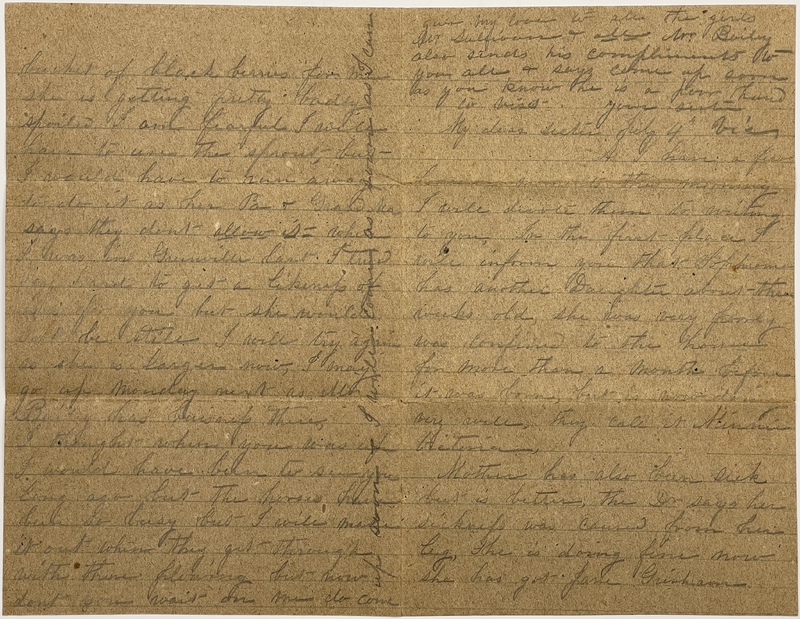 give my love to all the girls
Mr Sullivan & all Mr Bailey
also sends his compliments to
you all & says come up soon
as you know he is a poor hand
to visit. your sister
Vic
My dear sister July 4th
I have a few
this morning
I will devote them to writing
to you, In the first place I
will inform you that
has another Daughter about three
weeks old, she was very poorly
was confined to the house
for more than a month before
it was born, but is now doing
very well, they call it Minnie
Victoria,
Mother has also been sick
but is better, the Dr says her
sickness was caused from her
leg, She is doing fine now
she has got
bucket of black berries for me
she is getting pretty badly
spoiled I am fearful I will
have to use the sprout, but
I would have to run away
to do it as her Pa & Grand Ma
says they dont allow it when
I was in last I tried
to get a likeness of
for you but she would
not be still I will try again
as she is larger now, I may
go up Monday next as Mr
Bailey has business there,
I thought when you was up
I would have been to see you
long ago but the horses have
been so busy but I will make
it out when they get through
with there plowing but now
dont you wait on me do come
up soon & I will come as soon as I can